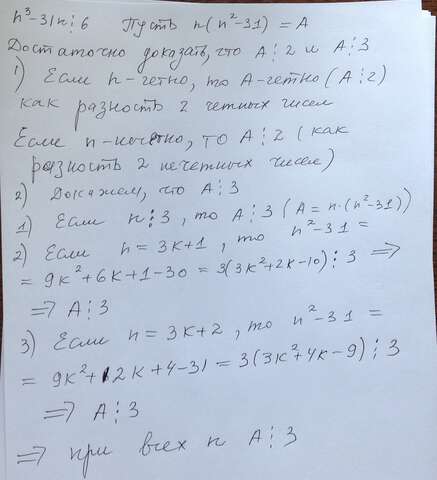 n³-31n⋮6 Пусть n(n²-31) = A
Достаточно доказать, что A⋮2 и A⋮3
1) Если n-четно, то A-четно (A⋮2)
как разность 2 четных чисел
Если n-нечетно, то A⋮2 (как
разность 2 нечетных чисел)
2) Докажем, что A⋮3
1) Если n⋮3, то A⋮3 (A = n·(n²-31))
2) Если n = 3k+1, то n²-31 =
= 9k²+6k+1-30 = 3(3k²+2k-10)⋮3 ⟹
⟹ A⋮3
3) Если n = 3k+2, то n²-31 =
= 9k²+12k+4-31 = 3(3k²+4k-9)⋮3
⟹ A⋮3
⟹ при всех n A⋮3